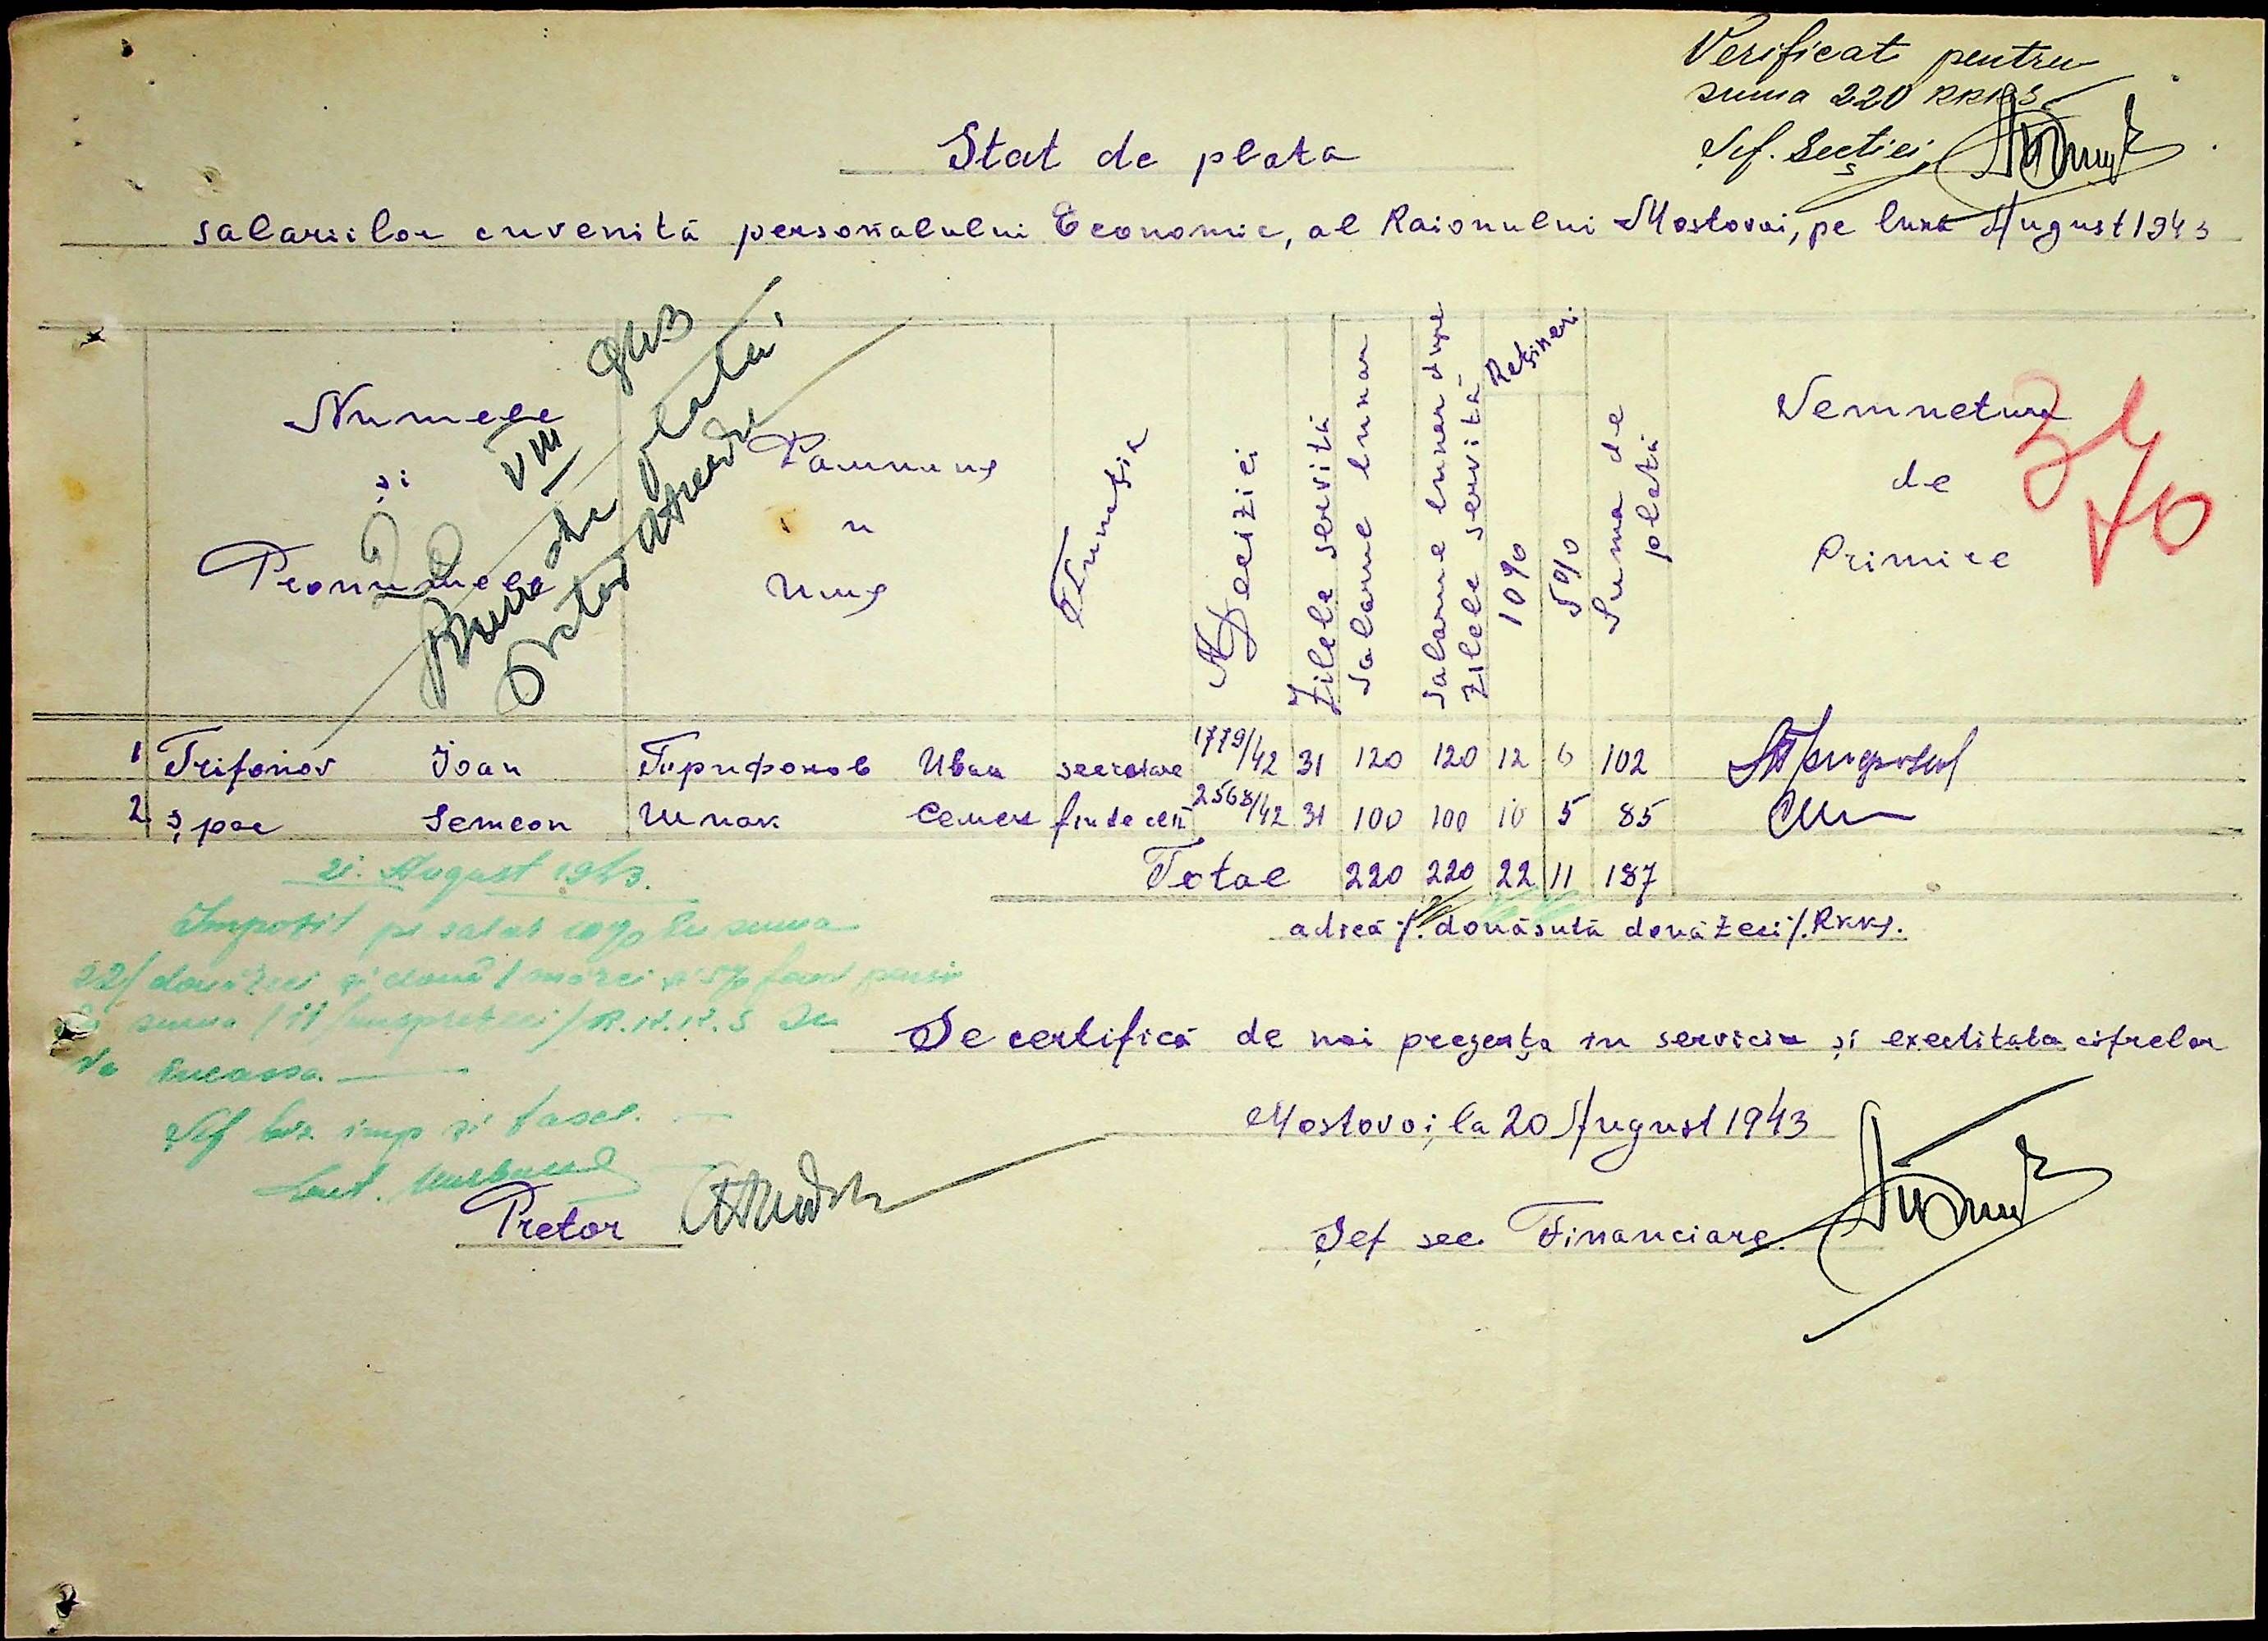 Verificat pentru
suma 220 RKKS
Șef. Secției,
Stat de plata
salariilor cuvenită personalului Economic, al Raionului Mostovoi, pe luna August 1943
Numele
și
Pronumele
VIII 943
Bun de plată,
Pretor
Фамилия
и
Имя
Funcția
N Deciziei
Zilele servită
Salarul lunar
Salarul lunar dupe
zilele servită
Rețineri
10%
5%
Suma de
plată
Semnetura
de
Primire
370
1 Trifonov Ioan Трифонов Иван secretare 1779/42 31 120 120 12 6 102
2 Șpac Semeon Шпак Семен 2568/42 31 100 100 10 5 85
Total 220 220 22 11 187
adică /. douăsută douăzeci /. Rkks.
21. August 1943.
Impozit pe salar 10% în suma
22/ douăzeci și două / mărci și 5% fond pensie
suma / 11 / unsprezeci / R.K.K.S
incassa.
Șef imp și
Se certifică de noi prezența in serviciu și exectitata cifrelor
Mostovoi, la 20 August 1943
Pretor
Șef sec. Financiare.